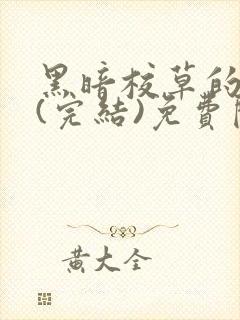 黑暗校草的
(完結)免費
黃大全